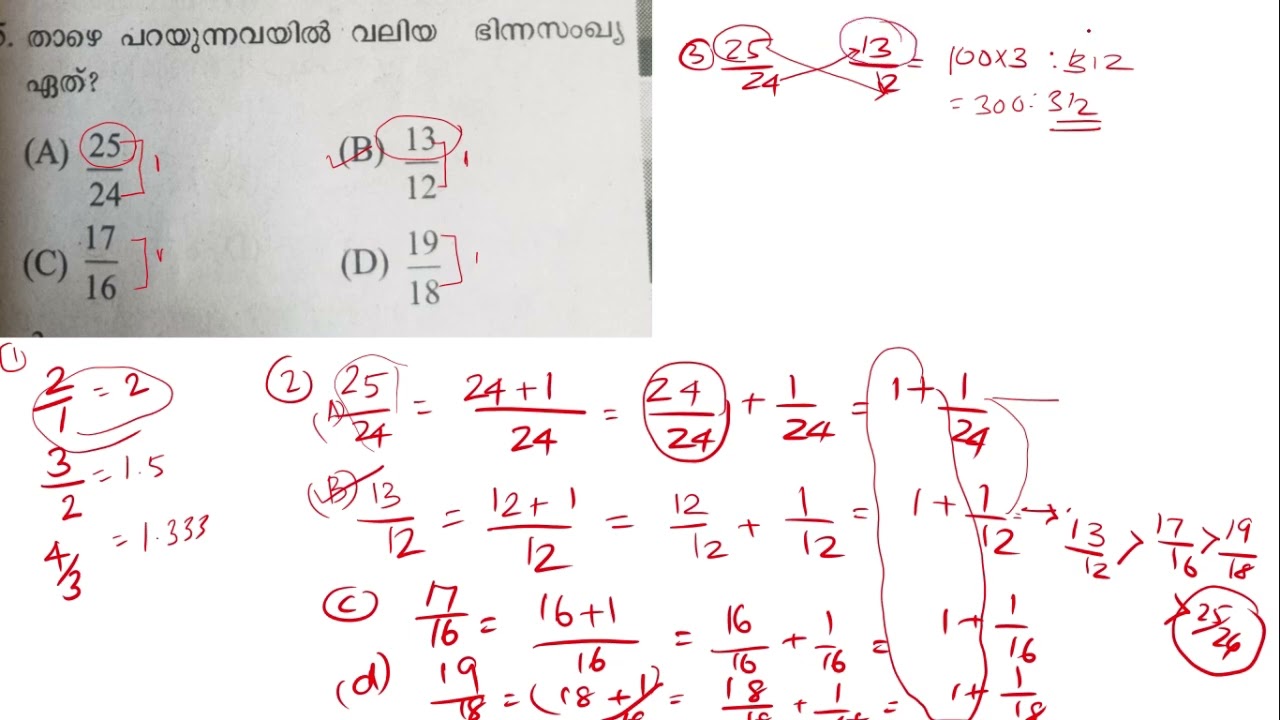 5. താഴെ പറയുന്നവയിൽ വലിയ ഭിന്നസംഖ്യ
ഏത്?
(A) 25/24 (B) 13/12
(C) 17/16 (D) 19/18
③ 25/24 13/12 = 100×3 : 312
= 300 : 312
①
2/1 = 2
3/2 = 1.5
4/3 = 1.333
② (A) 25/24 = 24+1/24 = 24/24 + 1/24 = 1 + 1/24
(B) 13/12 = 12+1/12 = 12/12 + 1/12 = 1 + 1/12 → 13/12 > 17/16 > 19/18
> 25/24
(c) 17/16 = 16+1/16 = 16/16 + 1/16 = 1 + 1/16
(d) 19/18 = (18+1/18 = 18/18 + 1/18 = 1 + 1/18